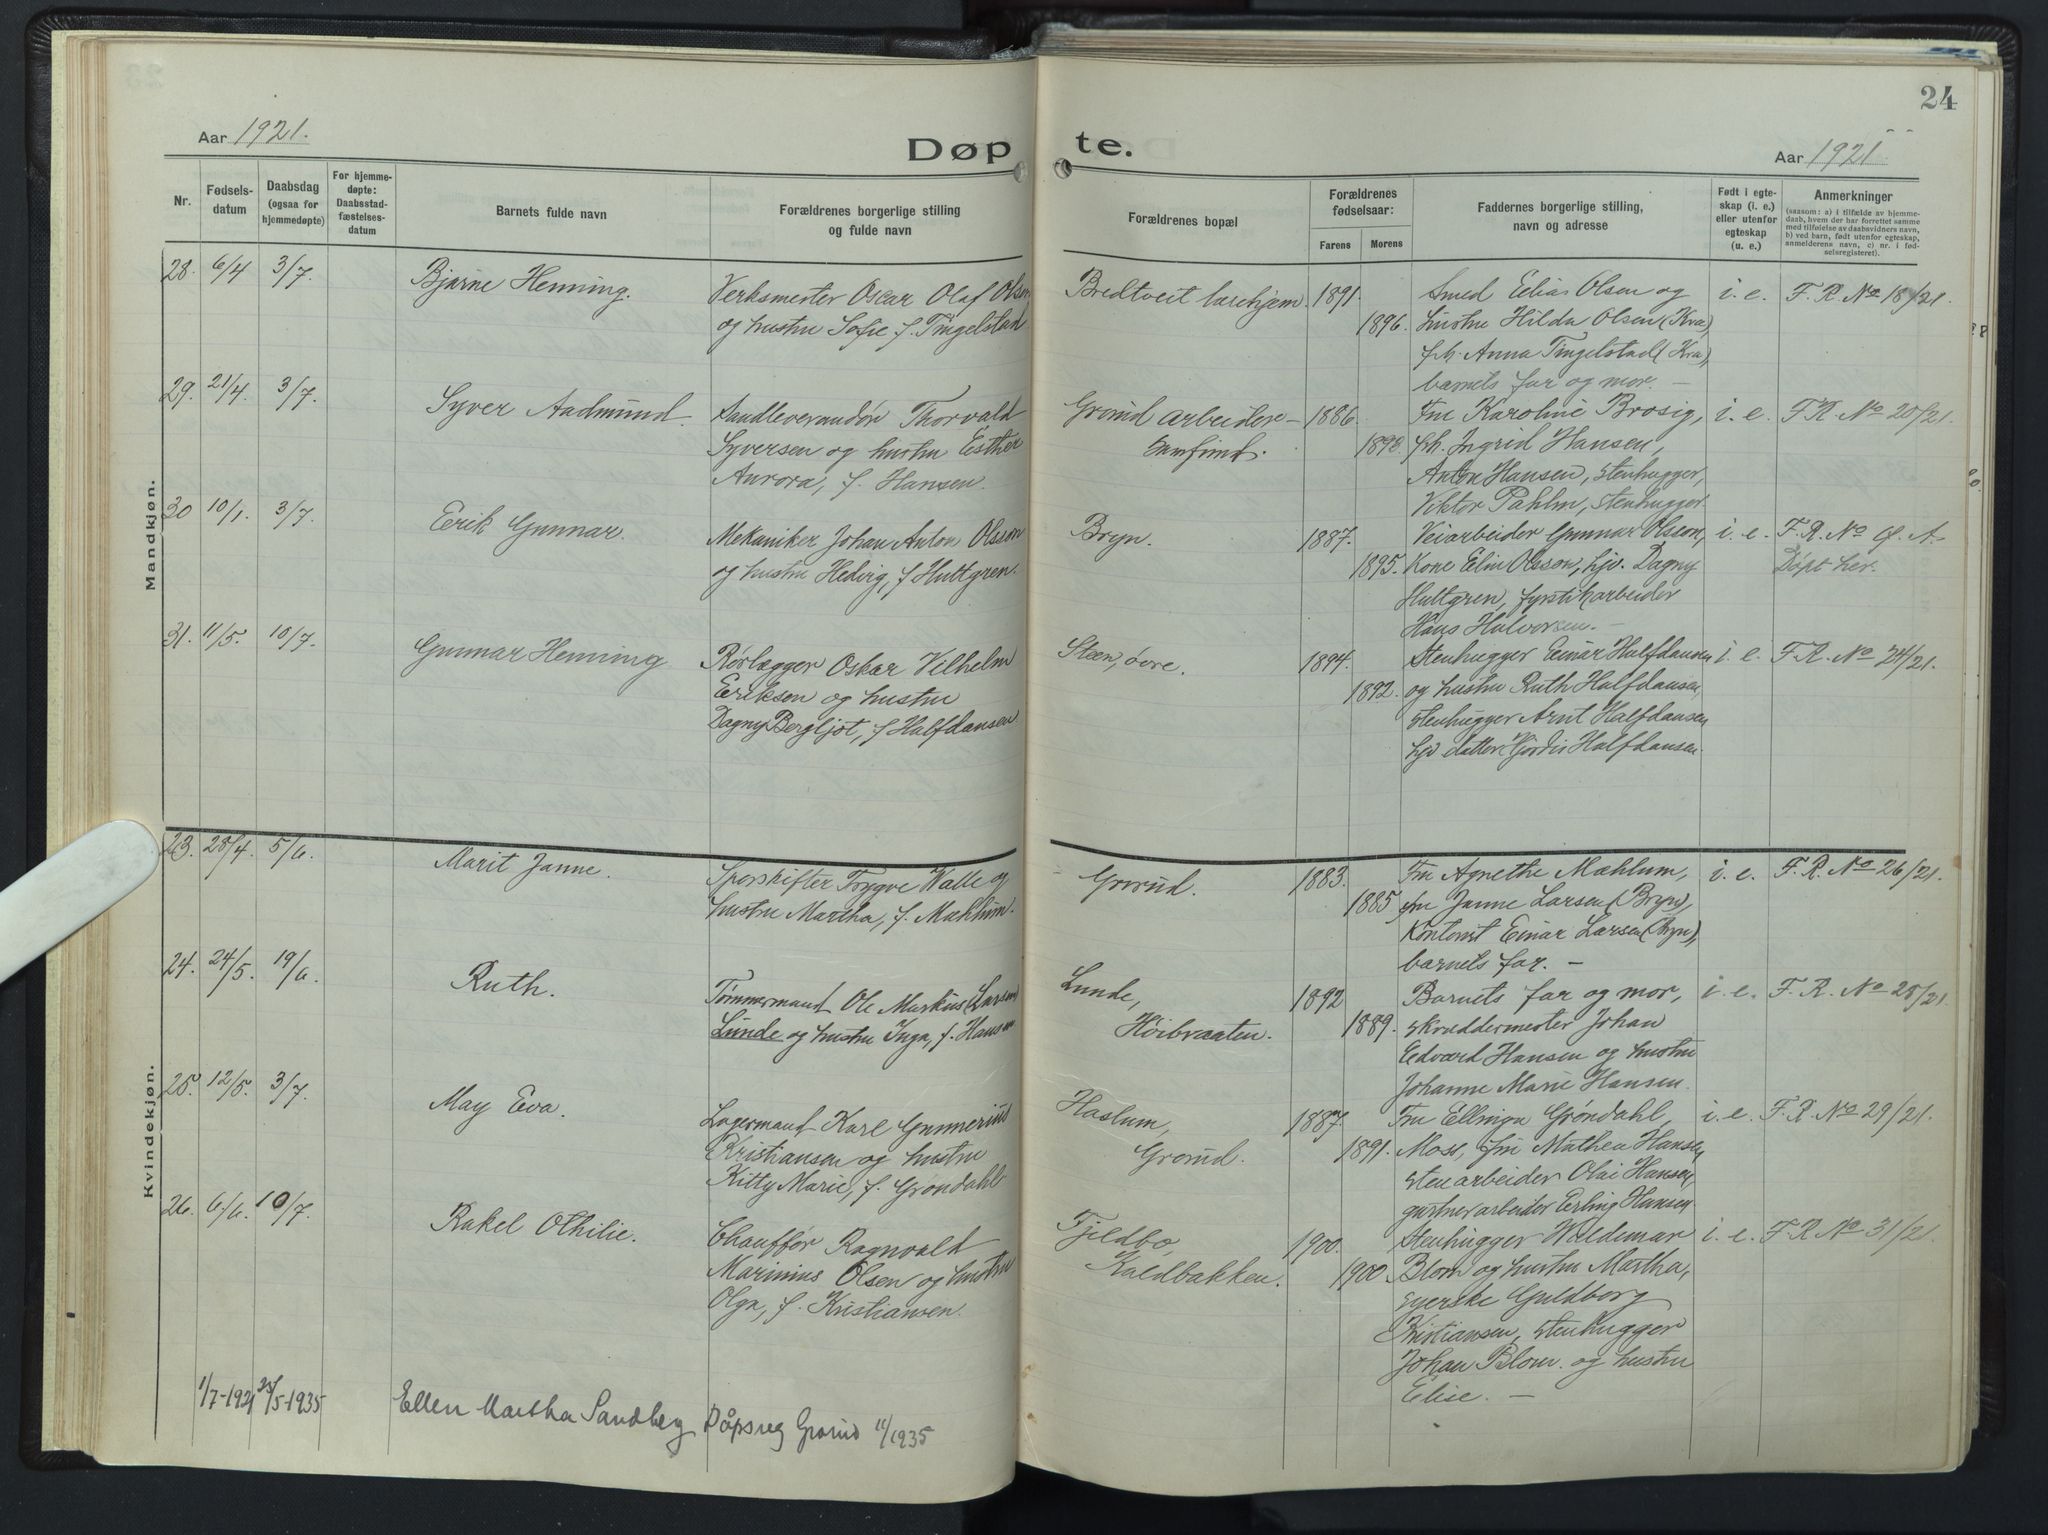 24
Aar 1921.
Døpte.
Aar 1921
Nr.
Fødsels-
datum
Daabsdag
(ogsaa for
hjemmedøpte)
For hjemme-
døpte:
Daabsstad-
fæstelses-
datum
Barnets fulde navn
Forældrenes borgerlige stilling
og fulde navn
Forældrenes bopæl
Forældrenes
fødselsaar:
Farens
Morens
Faddernes borgerlige stilling,
navn og adresse
Født i egte-
skap (i. e.)
eller utenfor
egteskap
(u. e.)
Anmerkninger
(saasom: a) i tilfælde av hjemme-
daab, hvem der har forrettet samme
med tilføielse av daabsvidners navn,
b) ved barn, født utenfor egteskap,
anmelderens navn, c) nr. i fød-
selsregisteret).
Mandkjøn.
28. 6/4 3/7. Bjarne Henning.
Verksmester Oscar Olaf Olsen
og hustru Sofie f. Tingelstad
Bredtveit lærehjem.
1891.
1896.
Smed Elias Olsen og
hustru Hilda Olsen (Kra),
frk. Anna Tingelstad (Kra),
barnets far og mor. –
i. e. F. R. No 18/21.
29. 21/4 3/7. Syver Aadmund.
Sandleverandør Thorvald
Syversen og hustru Esther
Aurora, f. Hansen.
Grorud arbeider-
samfund.
1886.
1898.
Fru Karoline Brosig,
frk. Ingrid Hansen,
Anton Hansen, stenhugger,
Viktor Pahlm, stenhugger.
i. e. F. R. No 20/21.
30 10/1. 3/7. Erik Gunnar.
Mekaniker Johan Anton Olsson
og hustru Hedvig, f. Hultgren.
Bryn.
1887.
1895.
Veiarbeider Gunnar Olsson,
Kone Elin Olsson, hjv. Dagny
Hultgren, fyrstikarbeider
Hans Halvorsen. –
i. e. F. R. No Ø. A.
Døpt her.
31. 11/5. 10/7. Gunnar Henning
Rørlægger Oskar Vilhelm
Eriksen og hustru
Dagny Bergljot, f. Halfdansen
Steen, øvre.
1894.
1892.
Stenhugger Einar Halfdansen
og hustru Ruth Halfdansen,
stenhugger Arnt Halfdansen
hjv datter Hjördis Halfdansen.
i. e. F. R. No 24/21.
Kvindekjøn.
23. 28/4. 5/6. Marit Janne.
Sporskifter Trygve Walle og
hustru Martha, f. Mæhlum.
Grorud.
1883.
1885
Fru Agnethe Mæhlum,
fru Janne Larsen (Bryn),
Kontorist Einar Larsen (Bryn),
barnets far. –
i. e. F. R. No 26/21.
24. 24/5. 19/6. Ruth.
Tømmermand Ole Markus (Larsen)
Lunde og hustru Inga, f. Hansen
Lunde,
Høibraaten.
1892
1889.
Barnets far og mor,
skræddermester Johan
Edvard Hansen og hustru
Johanne Marie Hansen.
i. e. F. R. No 28/21.
25. 12/5. 3/7. May Eva.
Lagermand Karl Gunnerius
Kristiansen og hustru
Kitty Marie, f. Grøndahl
Haslum,
Grorud.
1887.
1891.
Fru Ellinga Grøndahl,
Moss, fru Mathea Hansen,
stenarbeider Olai Hansen,
gartnerarbeider Erling Hansen.
i. e. F. R. No 29/21.
26. 6/6. 10/7. Rakel Othilie.
Chauffør Ragnvald
Marinius Olsen og hustru
Olga, f. Kristiansen.
Fjeldbo,
Kaldbakken.
1900.
1900
Stenhugger Waldemar
Blom og hustru Martha,
syerske Guldborg
Kristiansen, stenhugger
Johan Blom og hustru
Elise. –
i. e. F. R No 31/21.
1/7-1921 /5-1935 Ellen Martha Sandberg Dåpsreg Grorud 11/1935